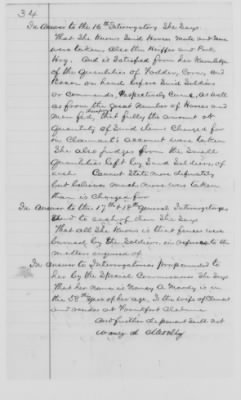 34
In Answer to the 16th Interrogatory She Says
That She Knows Said Horses Mule and Mare
were taken, Also the Heiffer and Pork
Hog. And is Satisfied from her Knowledge
of the Quantities of Fodder, Corn, and
Bacon on hand before Said Soldiers
or Commands, Respectively Came, As well
as from the Great Number of Horses and
men fed, that fully the amount or
Quantity of Said Items Charged for
in Claimant's account were taken
She also judges from the Small
Quantities left by Said Soldiers of
each Cannot State more definitely
but believes much more was taken
than is Charged for
In Answer to the 17th & 18th General Interrogatories
and to each of them She Says
That All She Knows is that fences were
burned by the Soldiers, in reference to the
matters enquired of
In Answer to Interrogatories propounded to
her by the Special Commissioner She Says
That her name is Nancy A Moody is in
the 58th Year of her Age, Is the wife of Claimant
and resides at Frankfort Alabama
And further deponent Saith not
Nancy A Moody